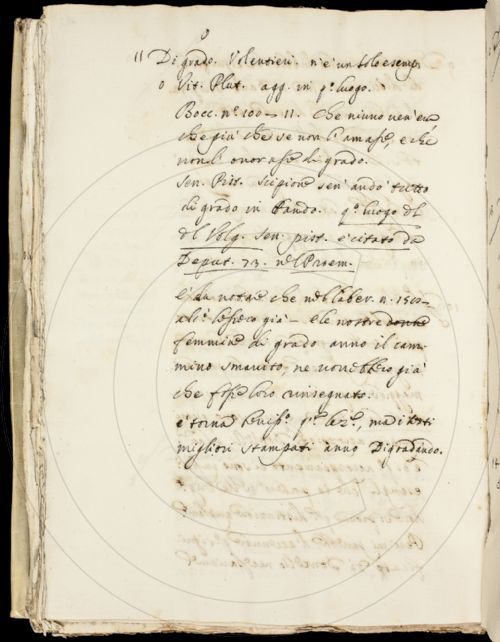 11 Di grado. Volentieri. n'è un solo esemp
o Vit. Plut. agg. in p.º luogo.
Bocc. n.º 100 - 11. Che niuno ven'era
che più che se non l'amasse, e ché
non l'onorasse di grado.
Sen. Pist. Scipione sen'andò tutto
di grado in bando. q.º luogo del
del Volg. Sen. pist. è citato da
Deput. 73. nel Proem.
è da notare che nel Laber. n. 150 -
si leggeva già - e le nostre donne
femmine di grado anno il cam-
mino smarito, ne vorrebbero già
che fosse loro rinsegnato.
e torna p.º ma i testi
migliori stampati anno Digradando.